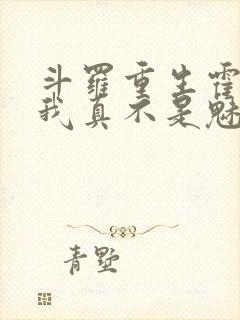 斗罗重生霍
我真不是魅
青墅